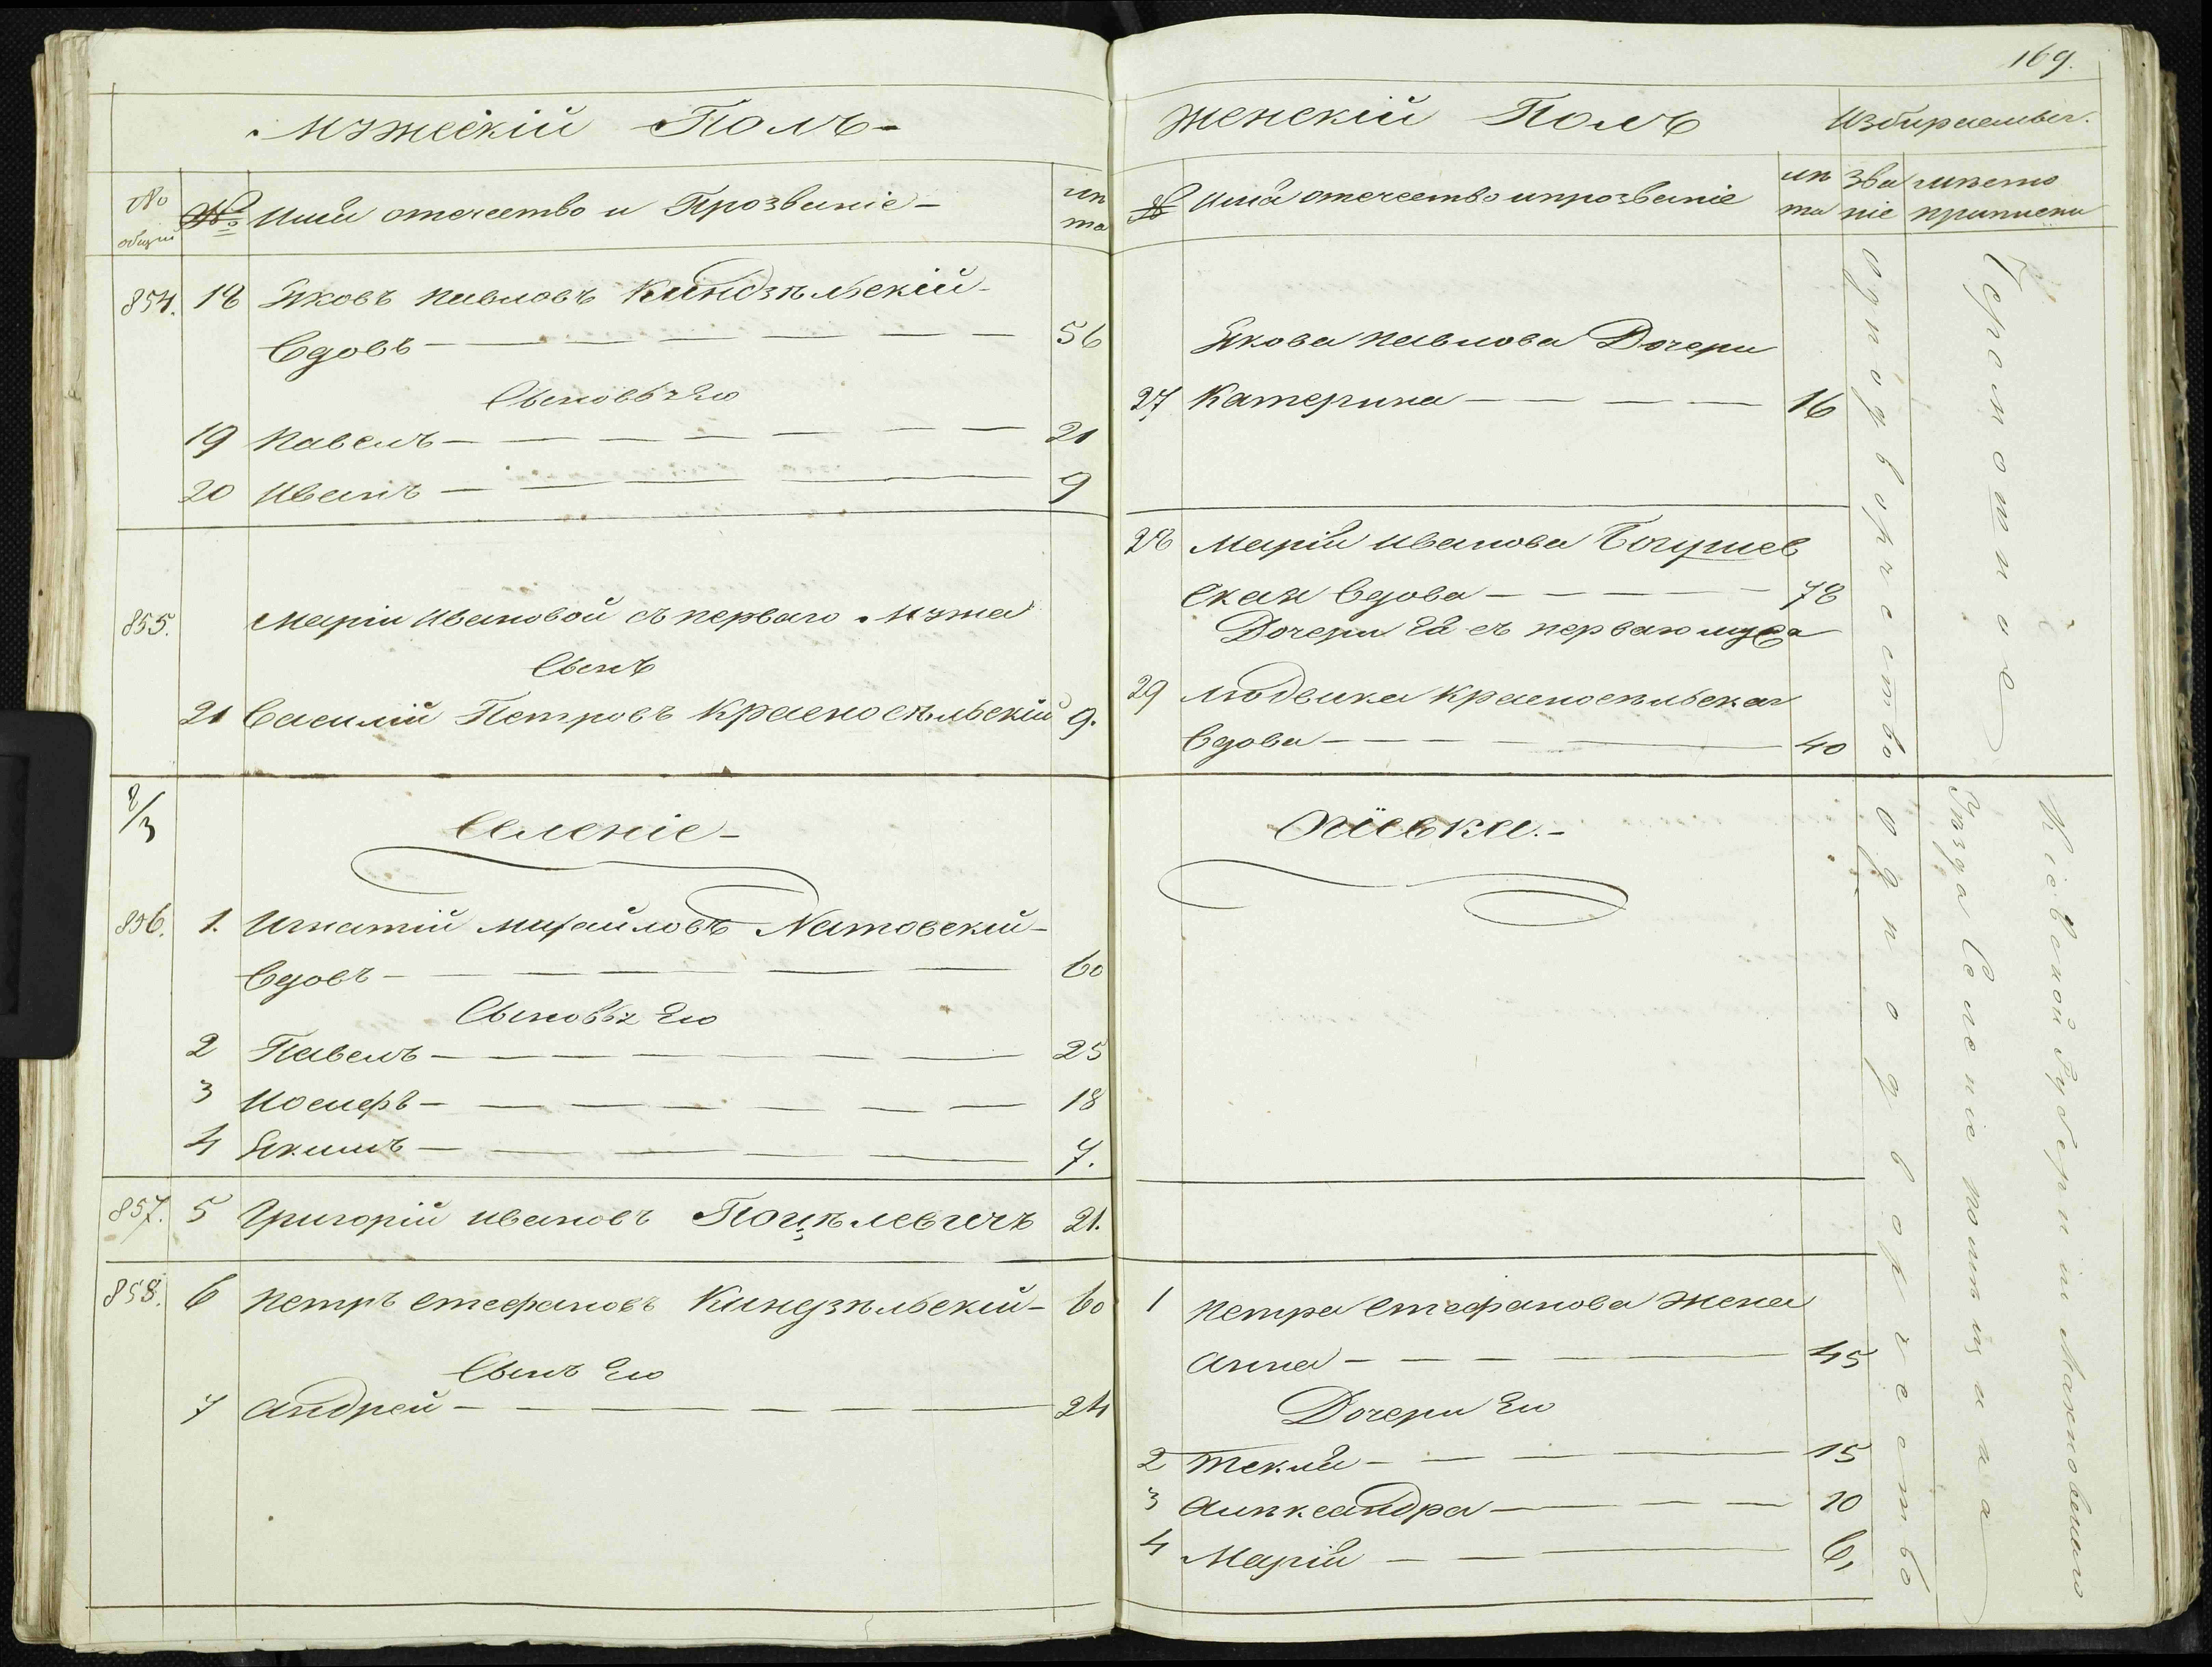 169.
Мужескій Полъ
№ общій
№
Имя отечество и Прозваніе
лѣта
854. 18 Яковъ Павловъ Киндзѣльскій
Вдовъ 56
Сыновья Его
19 Павелъ 21
20 Иванъ 9
855. Маріи Ивановой съ перваго Мужа
Сынъ
21 Василій Петровъ Красносѣльскій 9.
8/3
Селеніе
856. 1. Игнатій Михайловъ
Вдовъ 60
Сыновья Его
2 Павелъ 25
3 Иосифъ 18
4 Якимъ 7.
857. 5 Григорій Ивановъ 21.
858. 6 Петръ Стефановъ Киндзѣльскій 60
Сынъ Его
7 Андрей 24
Женскій Полъ
Избираемыя
№
Имя отечество и прозваніе
лѣта
званіе
мѣсто приписки
Якова Павлова Дочери
27 Катерина 16
28 Марія Иванова Богушев
ская Вдова 78
Дочери Ея съ перваго мужа
29 Людвика Красносѣльская
Вдова 40
1 Петра Стефанова Жена
Анна 45
Дочери Его
2 Текля 15
3 Алѣксандра 10
4 Марія 6,
Однодворчество
Однодворчество
Кіевской Губерніи Махновскаго
Уѣзда Селеніе